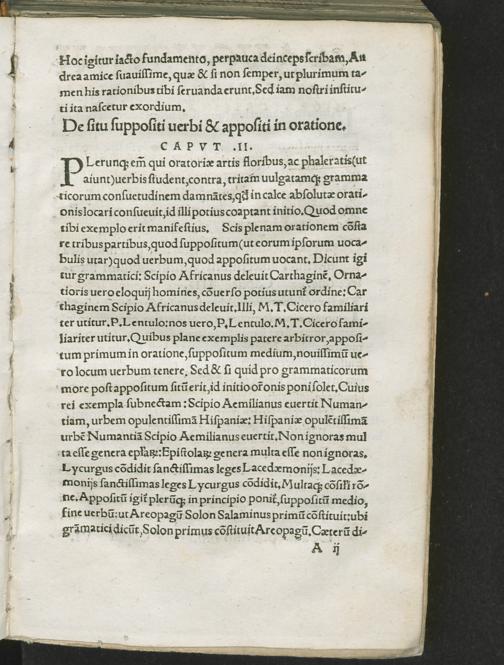 Hoc igitur iacto fundamento, perpauca deinceps scribam, An
drea amice suauissime, quæ & si non semper, ut plurimum ta-
men his rationibus tibi seruanda erunt. Sed iam nostri institu-
ti ita nascetur exordium.
De situ suppositi uerbi & appositi in oratione.
CAPVT .II.
PLerunq; em̃ qui oratoriæ artis floribus, ac phaleratis (ut
aiunt) uerbis student, contra, tritam uulgatamq; gramma
ticorum consuetudinem damnãtes, qđ in calce absolutæ orati-
onis locari consueuit, id illi potius coaptant initio. Quod omne
tibi exemplo erit manifestius. Scis plenam orationem cõsta
re tribus partibus, quod suppositum (ut eorum ipsorum uoca-
bulis utar) quod uerbum, quod appositum uocant. Dicunt igi
tur grammatici: Scipio Africanus deleuit Carthaginẽ, Orna-
tioris uero eloquij homines, cõuerso potius utunt᷑ ordine: Car
thaginem Scipio Africanus deleuit. Illi, M. T. Cicero familiari
ter utitur. P. Lentulo: nos uero, P. Lentulo. M. T. Cicero fami-
liariter utitur. Quibus plane exemplis patere arbitror, apposi-
tum primum in oratione, suppositum medium, nouissimũ ue-
ro locum uerbum tenere. Sed & si quid pro grammaticorum
more post appositum sitũ erit, id initio or̃onis poni solet. Cuius
rei exempla subnectam: Scipio Aemilianus euertit Numan-
tiam, urbem opulentissimã Hispaniæ: Hispaniæ opulẽtissimã
urbẽ Numantiã Scipio Aemilianus euertit. Non ignoras mul
ta esse genera ep̃laꝝ: Epistolaꝝ genera multa esse non ignoras.
Lycurgus cõdidit sanctissimas leges Lacedæmonijs: Lacedæ-
monijs sanctissimas leges Lycurgus cõdidit. Multaq; cõsiłi rõ-
ne. Appositũ igit᷑ plerũq; in principio ponit᷑, suppositũ medio,
fine uerbũ: ut Areopagũ Solon Salaminus primũ cõstituit: ubi
grãmatici dicũt, Solon primus cõstituit Areopagũ. Cæterũ di-
A ij